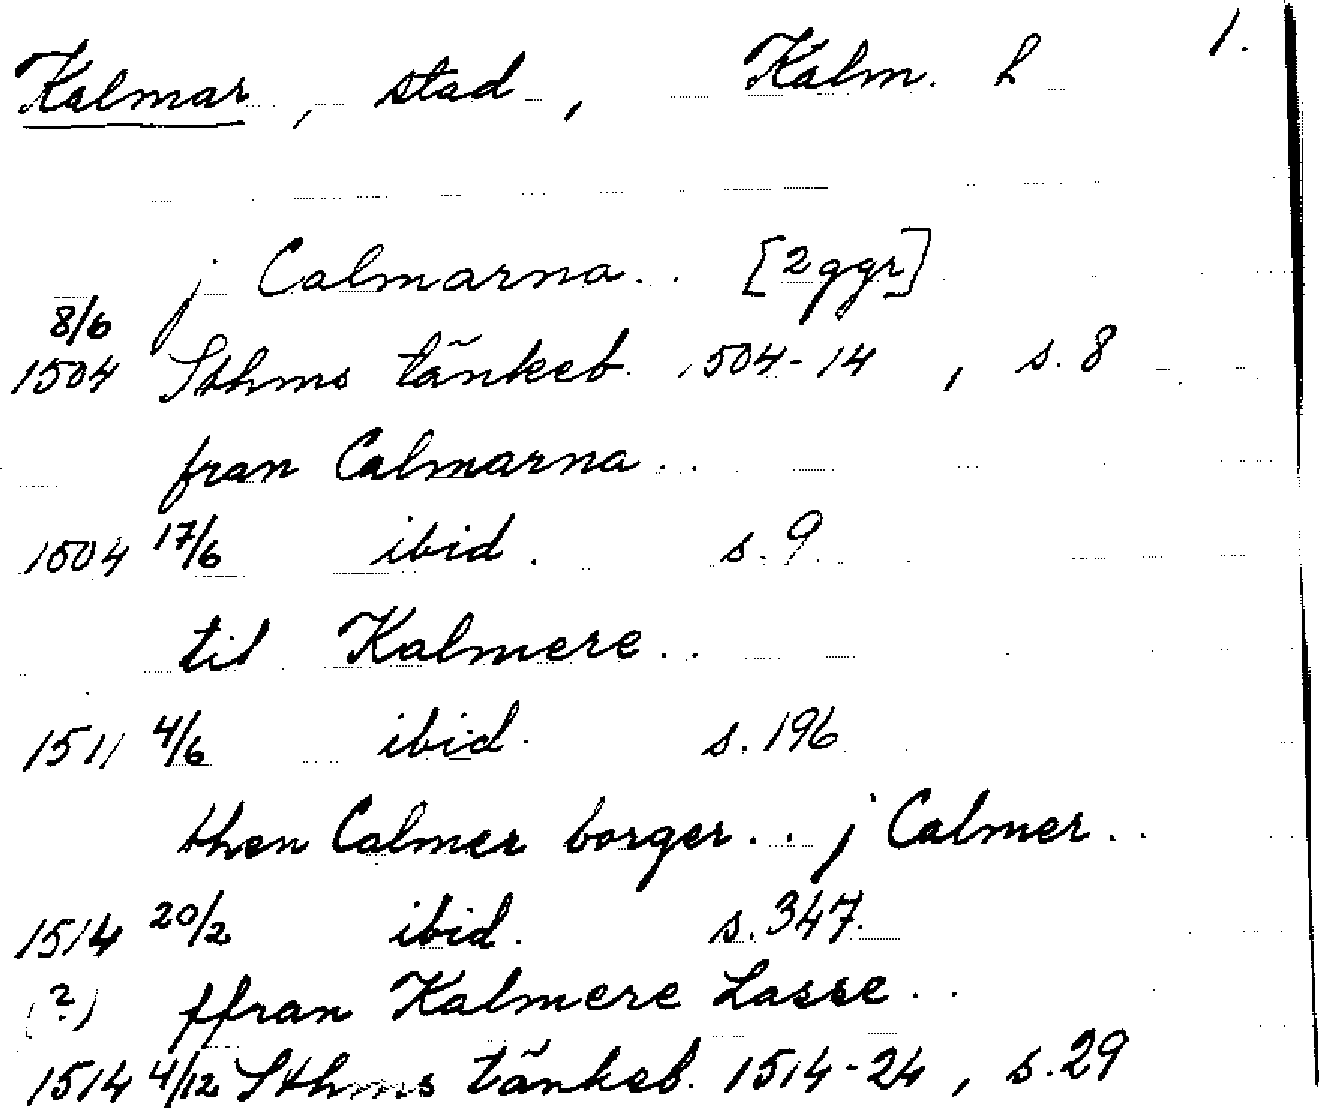 Kalmar, stad, Kalm. l 1.
j Calmarna.. [2ggr]
8/6
1504 Sthms tänkeb. 1504-14, s. 8
fran Calmarna..
1504 17/6 ibid. s. 9
til Kalmere..
1511 4/6 ibid. s. 196
then Calmer borger... j Calmer..
1514 20/2 ibid. s. 347.
(?) ffran Kalmere Lasse..
1514 4/12 Sthms tänkeb. 1514-24, s. 29